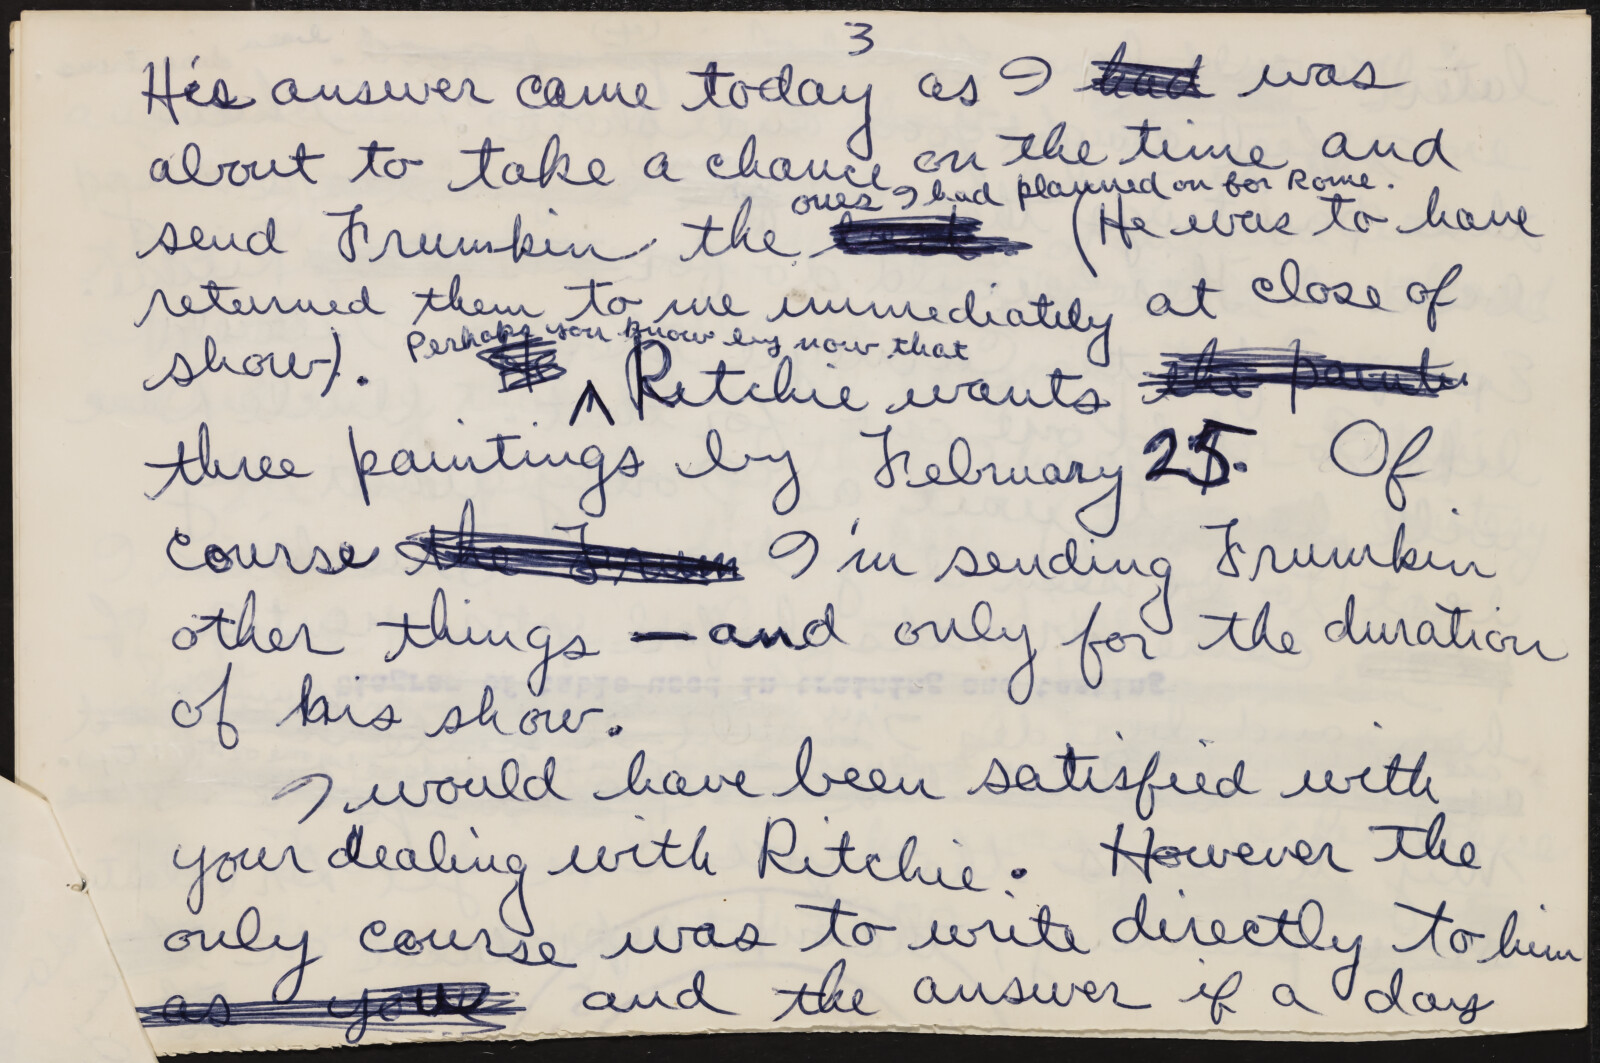 3
His answer came today as I had was
about to take a chance on the time and
ones I had planned on for Rome.
send Frumkin the (He was to have
returned them to me immediately at close of
Perhaps you know by now that
show). ^ Ritchie wants the paint
three paintings by February 25. Of
course the Frum I'm sending Frumkin
other things — and only for the duration
of his show.
I would have been satisfied with
your dealing with Ritchie. However the
only course was to write directly to him
as you and the answer if a day